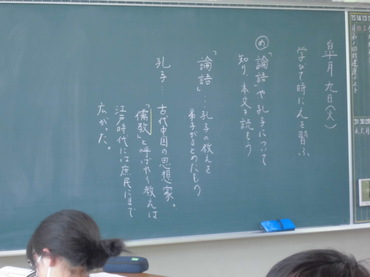 皐月 九日(火)
学びて時にこれを習ふ
め 「論語」や孔子について
知り、本文を読もう
「論語」…孔子の教えを
弟子がまとめたもの
孔子…古代中国の思想家。
「儒教」と呼ばれる教えは
江戸時代には庶民にまで
広がった。